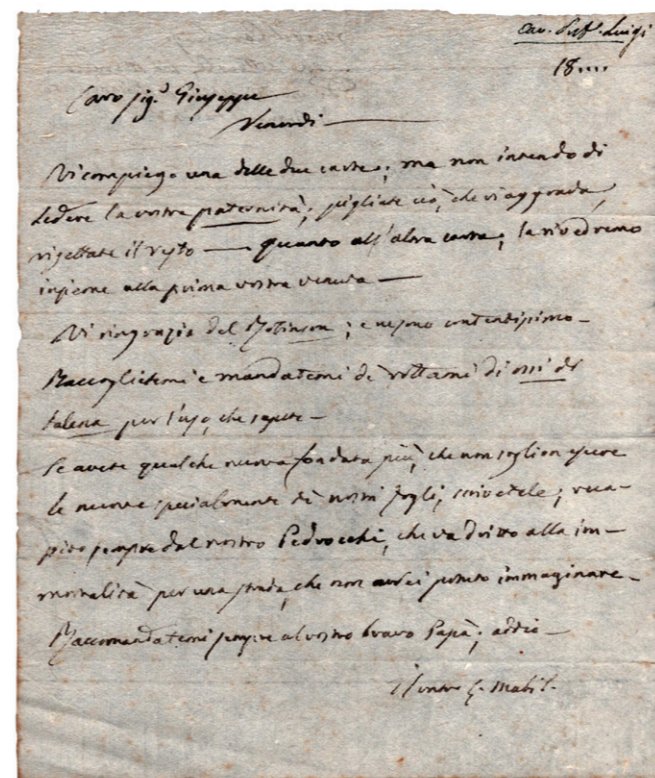 Cav. Luigi
18....
Caro Sig.r Giuseppe
Venerdì —
Vi compiego una delle due carte; ma non intendo di
ledere la vostra paternità; pigliate ciò, che vi aggrada,
rigettate il resto — quanto all'altra carta; la rivedremo
insieme alla prima vostra venuta —
Vi ringrazio del Robinson; e ne sono contentissimo —
Raccoglietemi e mandatemi de' rottami di ossi di
balena per l'uso, che sapete —
Se avete qualche nuova fondata più, che non soglion essere
le nuove specialmente de' nostri fogli, scrivetele; reca-
pito sempre dal nostro Pedrocchi, che va diritto alla im-
mortalità per una strada, che non avrei potuto immaginare —
Raccomandatemi sempre al vostro bravo Papà; addio —
Il vostro L. Mabil.